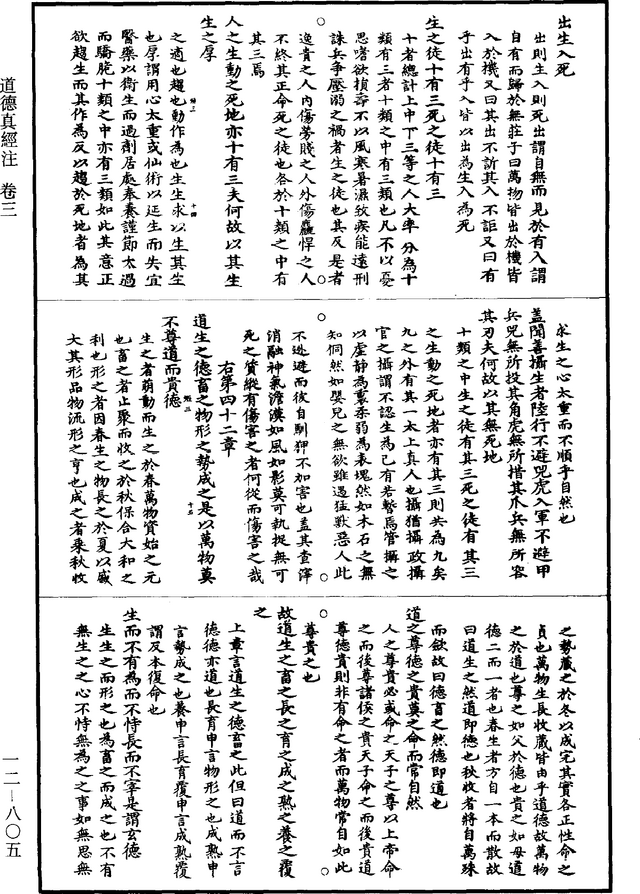 出生入死
出則生入則死出謂自無而見於有入謂
自有而歸於無莊子曰萬物皆出於機皆
入於機又曰其出不訢其入不詎又曰有
乎出有乎入皆以出為生入為死
生之徒十有三死之徒十有三
十者總計上中下三等之人大率分為十
類有三者十類之中有三類也凡不以憂
思嗜欲損壽不以風寒暑濕致疾能遠刑
誅兵爭壓溺之禍者生之徒也其反是者
逸貴之人內傷勞賤之人外傷麤悍之人
不終其正命死之徒也各於十類之中有
其三焉
人之生動之死地亦十有三夫何故以其生
生之厚
之適也趨也動作為也生生求以生其生
也厚謂用心太重或仙術以延生而失宜
醫藥以衛生而過劑居處奉養謹節太過
而驕脆十類之中亦有三類如此其意正
欲趨生而其作為反以趨於死地者為其
道德真經注 卷三
求生之心太重而不順乎自然也
蓋聞善攝生者陸行不避兕虎入軍不避甲
兵兕無所投其角虎無所措其爪兵無所容
其刃夫何故以其無死地
十類之中生之徒有其三死之徒有其三
之生動之死地者亦有其三則共為九矣
九之外有其一太上真人也攝猶攝政攝
官之攝謂不認生為己有若暫焉管攝之
以虛靜為裏柔弱為表塊然如木石之無
知侗然如嬰兒之無欲雖遇猛獸惡人此
不逃避而後自馴狎不加害也蓋其查滓
消融神氣澹漠如風如影莫可執捉無可
死之質縱有傷害之者何從而傷害之哉
右第四十二章
道生之德畜之物形之勢成之是以萬物莫
不尊道而貴德
生之者萌動而生之於春萬物資始之元
也畜之者止聚而收之於秋保合大和之
利也形之者因春生之物長之於夏以嚴
大其形品物流形之亨也成之者乘秋收
之勢藏之於冬以成完其實各正性命之
貞也萬物生長收藏皆由乎道德故萬物
之於道也尊之如父於德也貴之如母道
德二而一者也春生者方自一本而散故
曰道生之然道即德也秋收者將自萬殊
而斂故曰德畜之然德即道也
道之尊德之貴莫之命而常自然
人之尊貴必或命之天子之尊以上帝命
之而後尊諸侯之貴天子命之而後貴道
尊德貴則非有命之者而萬物常自如此
尊貴之也
故道生之畜之長之育之成之熟之養之覆
之
上章言道生之德畜之此但曰道而不言
德德亦道也長育申言物形之也成熟申
言勢成之也養申言長育覆申言成熟覆
謂反本復命也
生而不有為而不恃長而不宰是謂玄德
生生之而形之也為畜之而成之也不有
無生之之心不恃無為之之事如無思無
一二—八〇五